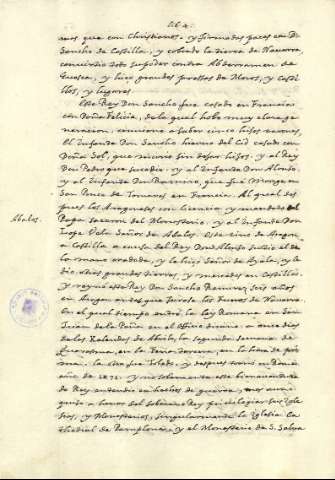 264.
mas que con Christianos, y firmadas paces con Dn
Sancho de Castilla, y cobrado la tierra de Navarra,
convirtio todo su poder contra Abderramen de
Guesca, y hizo grandes presas de Moros, y Casti
llos, y lugares.
Este Rey Don Sancho fue casado en Francia
con Doña Felicia, de la qual hobo muy clara ge
neracion, conviene a saber cinco hijos varones,
El Infante Don Sancho hierno del Cid casado con
Doña Sol, que murio sin dexar hijos, y al Rey
Don Pedro que sucedio, y al Infante Don Alonso,
y al Infante Don Ramiro, que fue Monge en
San Ponce de Tomeras en Francia. Al qual des
pues los Aragoneses con licencia, y acuerdo del
Abalos. Papa sacaron del Monasterio, y al Infante Don
Lope Velaz Señor de Abalos. Este vino de Aragon
a Castilla a cuesta del Rey Don Alonso
lo mano, y le hizo Señor de Ayala, y le
dio otras grandes tierras, y mercedes en Castilla.
Y reynó este Rey Don Sancho Ramirez seis años
en Aragon antes que fuera los Fueros de Navarra.
En el qual tiempo entró la ley Romana en San
Juan de la Peña en el Oficio divino, a onze dias
de las Kalendas de Abril, la segunda semana de
Quaresma, en la Feria tercera, en la hora de pri
ma, la otra fue Toledo, y despues tornó en Roma
año de 1071. y no solamente este bienaventurado
de Rey entendió en hechos de guerra, mas aun
a honra del soberano Rey privilegiar sus Igle
sias, y Monasterios, singularmente la Iglesia Ca
thedral de Pamplona, y el Monasterio de S. Salva